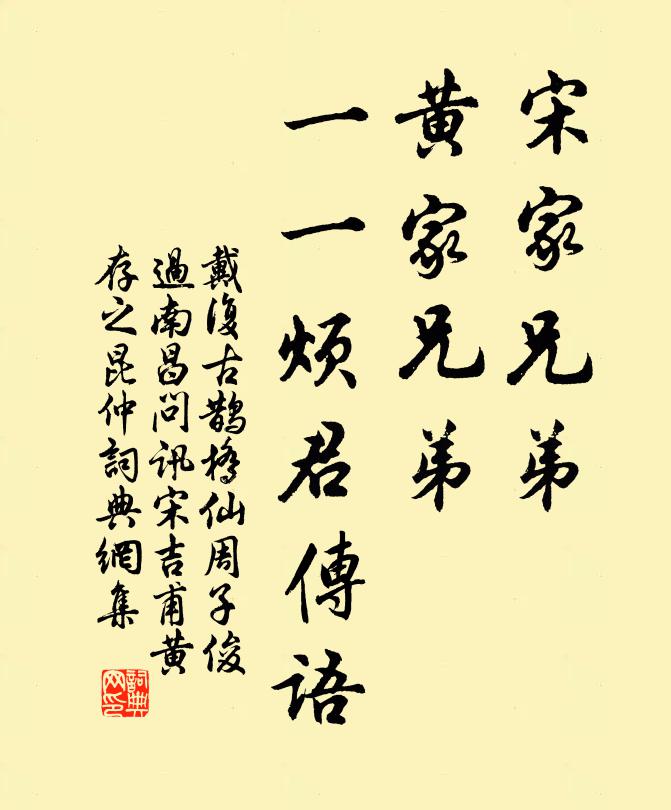 宋家兄弟
黃家兄弟
一一煩君傳語
戴復古鵲橋仙周子俊
過南昌問訊宋吉甫黃
存之昆仲詞典網集
詞典
网印